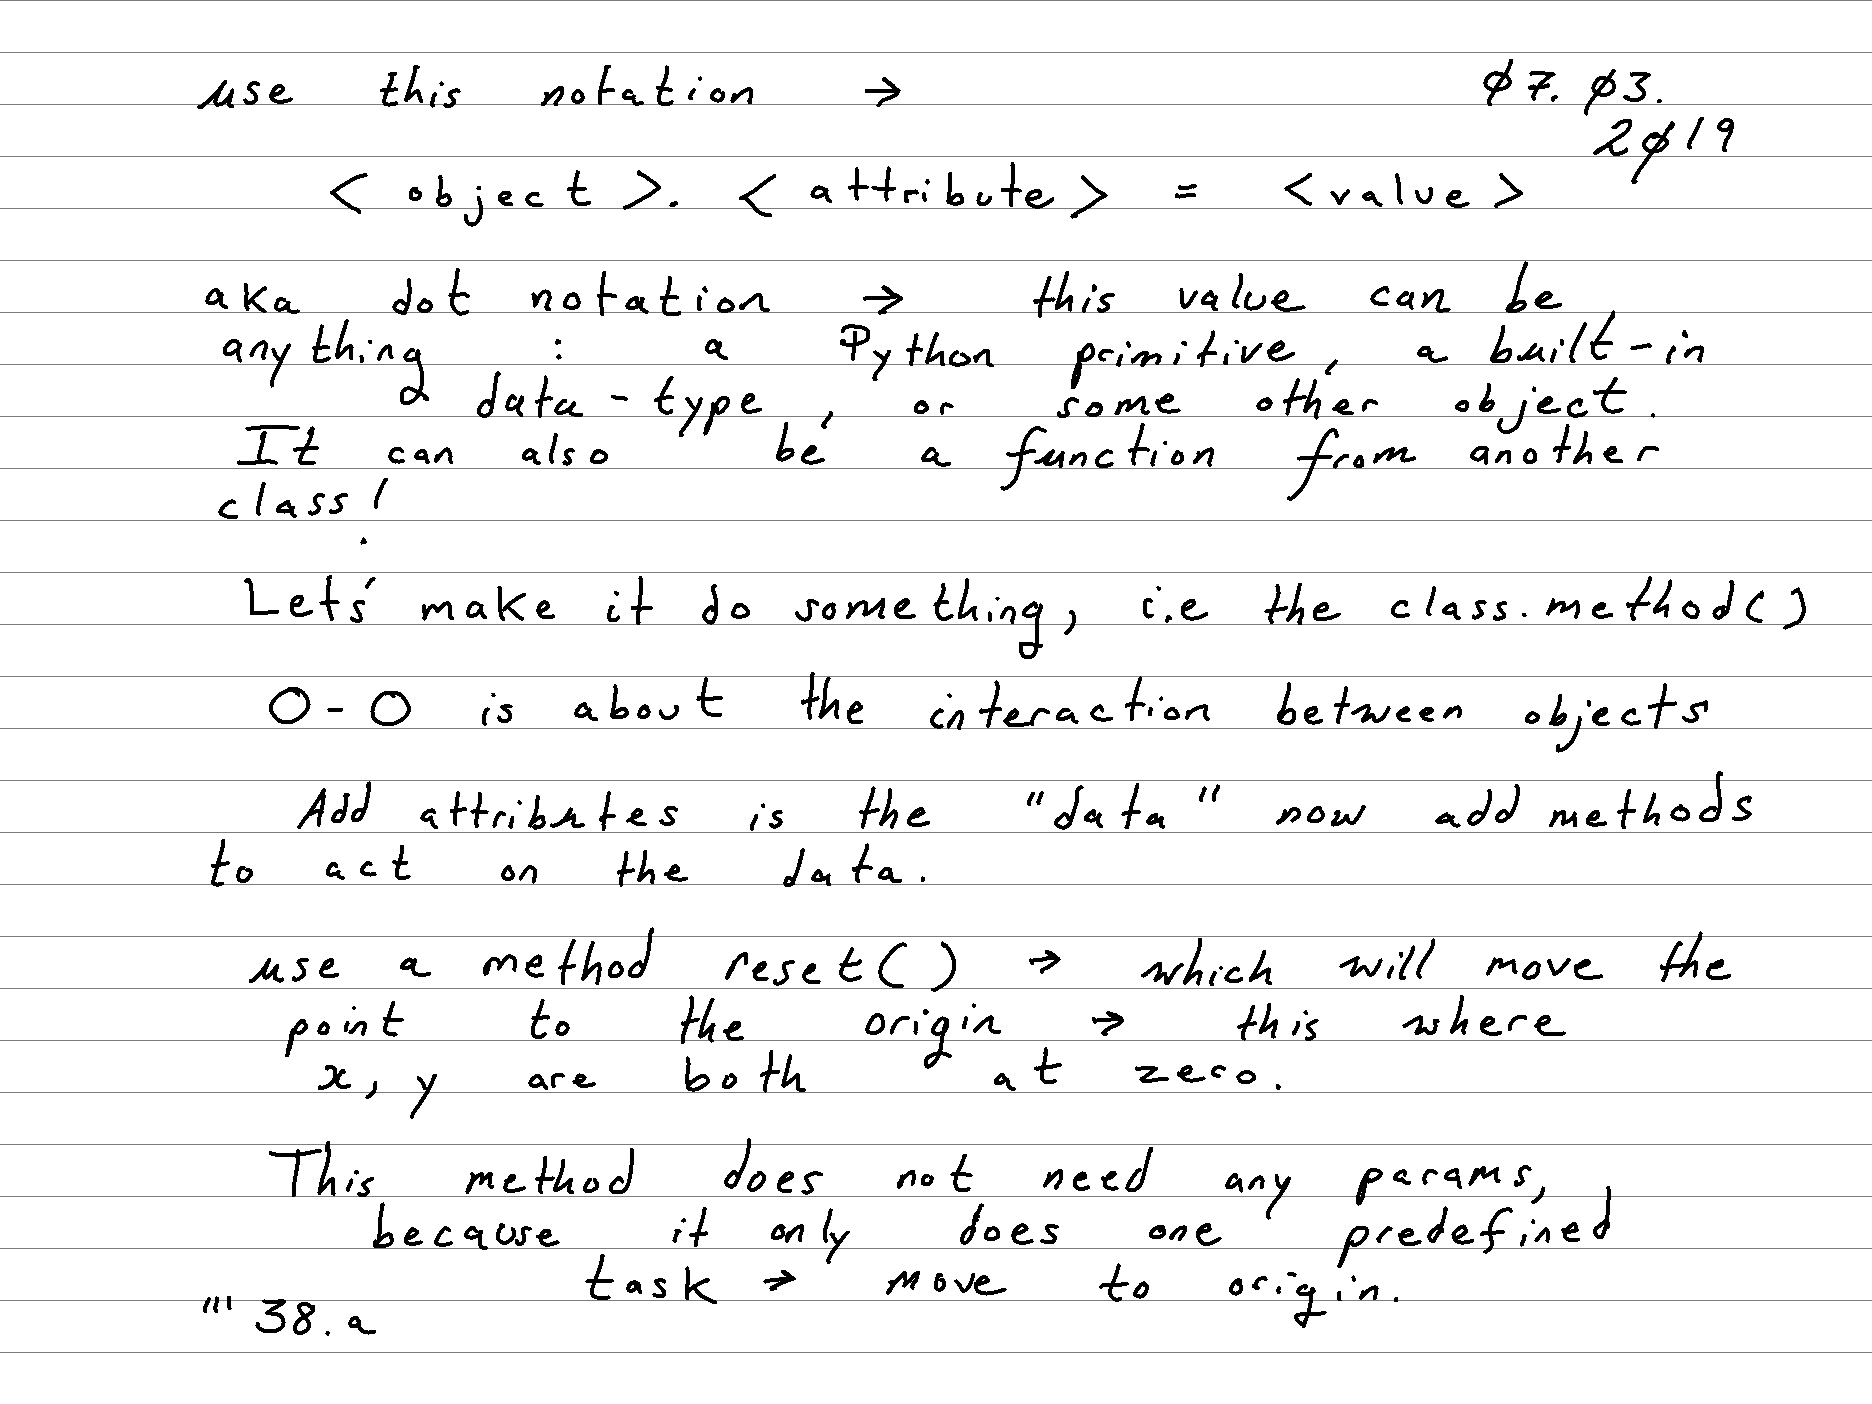 use this notation → Ø7. Ø3.
2Ø19
< object >. < attribute > = < value >
aka dot notation → this value can be
anything : a Python primitive, a built-in
data-type, or some other object.
It can also be a function from another
class!
Lets' make it do something, i.e the class.method()
O-O is about the interaction between objects
Add attributes is the "data" now add methods
to act on the data.
use a method reset() → which will move the
point to the origin → this where
x, y are both at zero.
This method does not need any params,
because it only does one predefined
task → move to origin.
"' 38.a